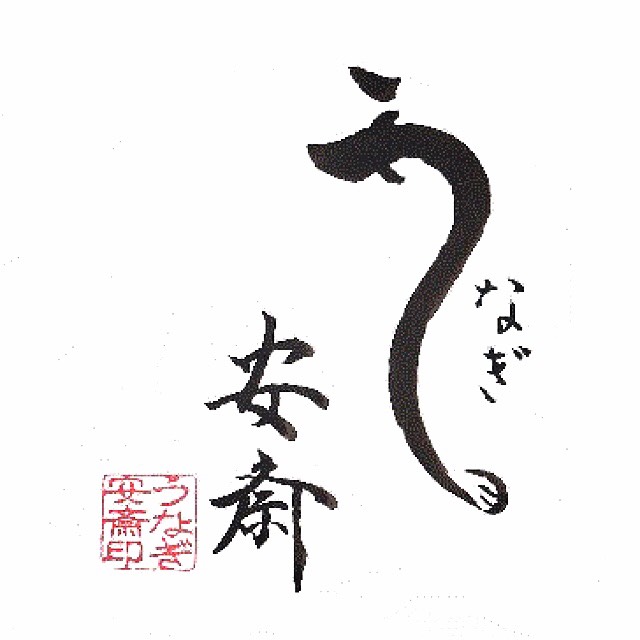 うなぎ
安斎
うなぎ
安斎印